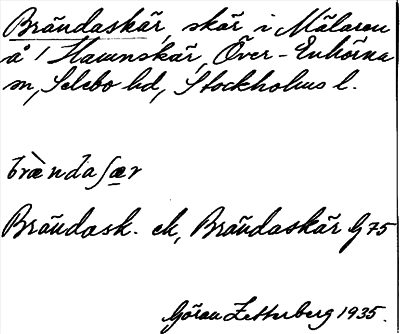 Brändaskär, skär i Mälaren
å / Hamnskär, Över-Enhörna
sn, Selebo hd, Stockholms l.
brὲndaʃær
Brändask. ek, Brändaskär G75
Göran Zetterberg 1935.